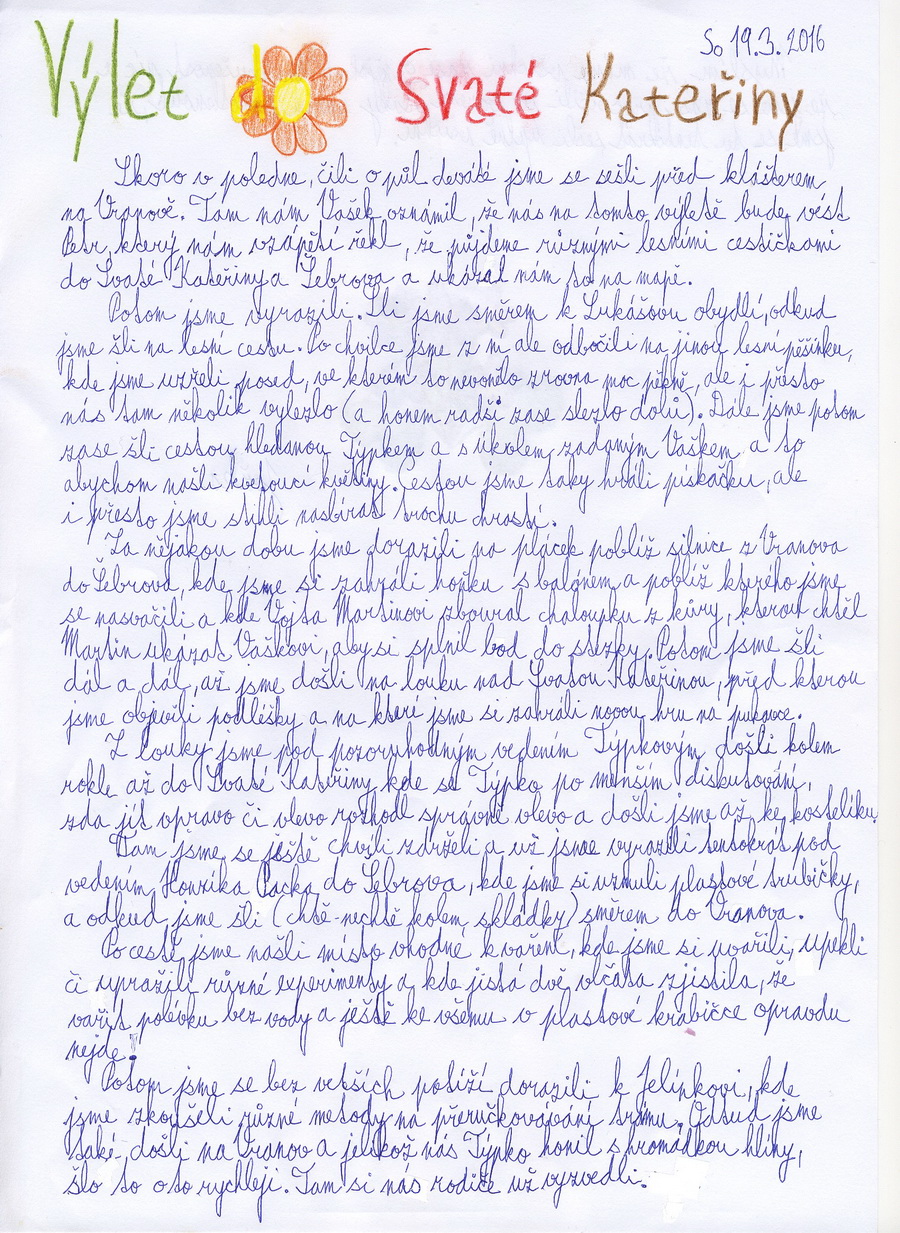 So 19.3.2016
Výlet do Svaté Kateřiny
Skoro v poledne, čili o půl deváté jsme se sešli před klášterem
na Vranově. Tam nám Vašek oznámil, že nás na tomto výletě bude vést
Petr, který nám vzápětí řekl, že půjdeme různými lesními cestičkami
do Svaté Kateřiny a Šebrova a ukázal nám to na mapě.
Potom jsme vyrazili. Šli jsme směrem k Lukášovu obydlí, odkud
jsme šli na lesní cestu. Po chvilce jsme z ní ale odbočili na jinou lesní pěšinku,
kde jsme uzřeli posed, ve kterém to nevonělo zrovna moc pěkně, ale i přesto
nás tam několik vylezlo (a honem radši zase slezlo dolů). Dále jsme potom
zase šli cestou hledanou Týpkem a s úkolem zadaným Vaškem a to
abychom našli kvetoucí květiny. Cestou jsme taky hráli pískačku, ale
i přesto jsme stihli nasbírat trochu chrastí.
Za nějakou dobu jsme dorazili na plácek poblíž silnice z Vranova
do Šebrova, kde jsme si zahráli hoňku s balónem a poblíž kterého jsme
se nasvačili a kde Vojta Martinovi zboural chaloupku z kůry, kterou chtěl
Martin ukázat Vaškovi, aby si splnil bod do stezky. Potom jsme šli
dál a dál, až jsme došli na louku nad Svatou Kateřinou, před kterou
jsme objevili podléšky a na které jsme si zahráli novou hru na pukavce.
Z louky jsme pod pozoruhodným vedením Týpkovým došli kolem
rokle až do Svaté Kateřiny, kde se Týpko po menším diskutování,
zda jít vpravo či vlevo rozhodl správně vlevo a došli jsme až ke kostelíku.
Tam jsme se ještě chvíli zdrželi a už jsme vyrazili tentokrát pod
vedením Honzíka Packa do Šebrova, kde jsme si vzmuli plastové trubičky,
a odkud jsme šli (chtě-nechtě kolem skládky) směrem do Vranova.
Po cestě jsme našli místo vhodné k vaření, kde jsme si uvařili, upekli
či vyprážili různé experimenty a kde jistá dvě vlčata zjistila, že
vařit polévku bez vody a ještě ke všemu v plastové krabičce opravdu
nejde!
Potom jsme se bez vetších potíží dorazili k Jelínkovi, kde
jsme zkoušeli různé metody na přeručkovávání trámu. Odtud jsme
také došli na Vranov a jelikož nás Týpko honil s hromádkou hlíny,
šlo to o to rychleji. Tam si nás rodiče už vyzvedli.